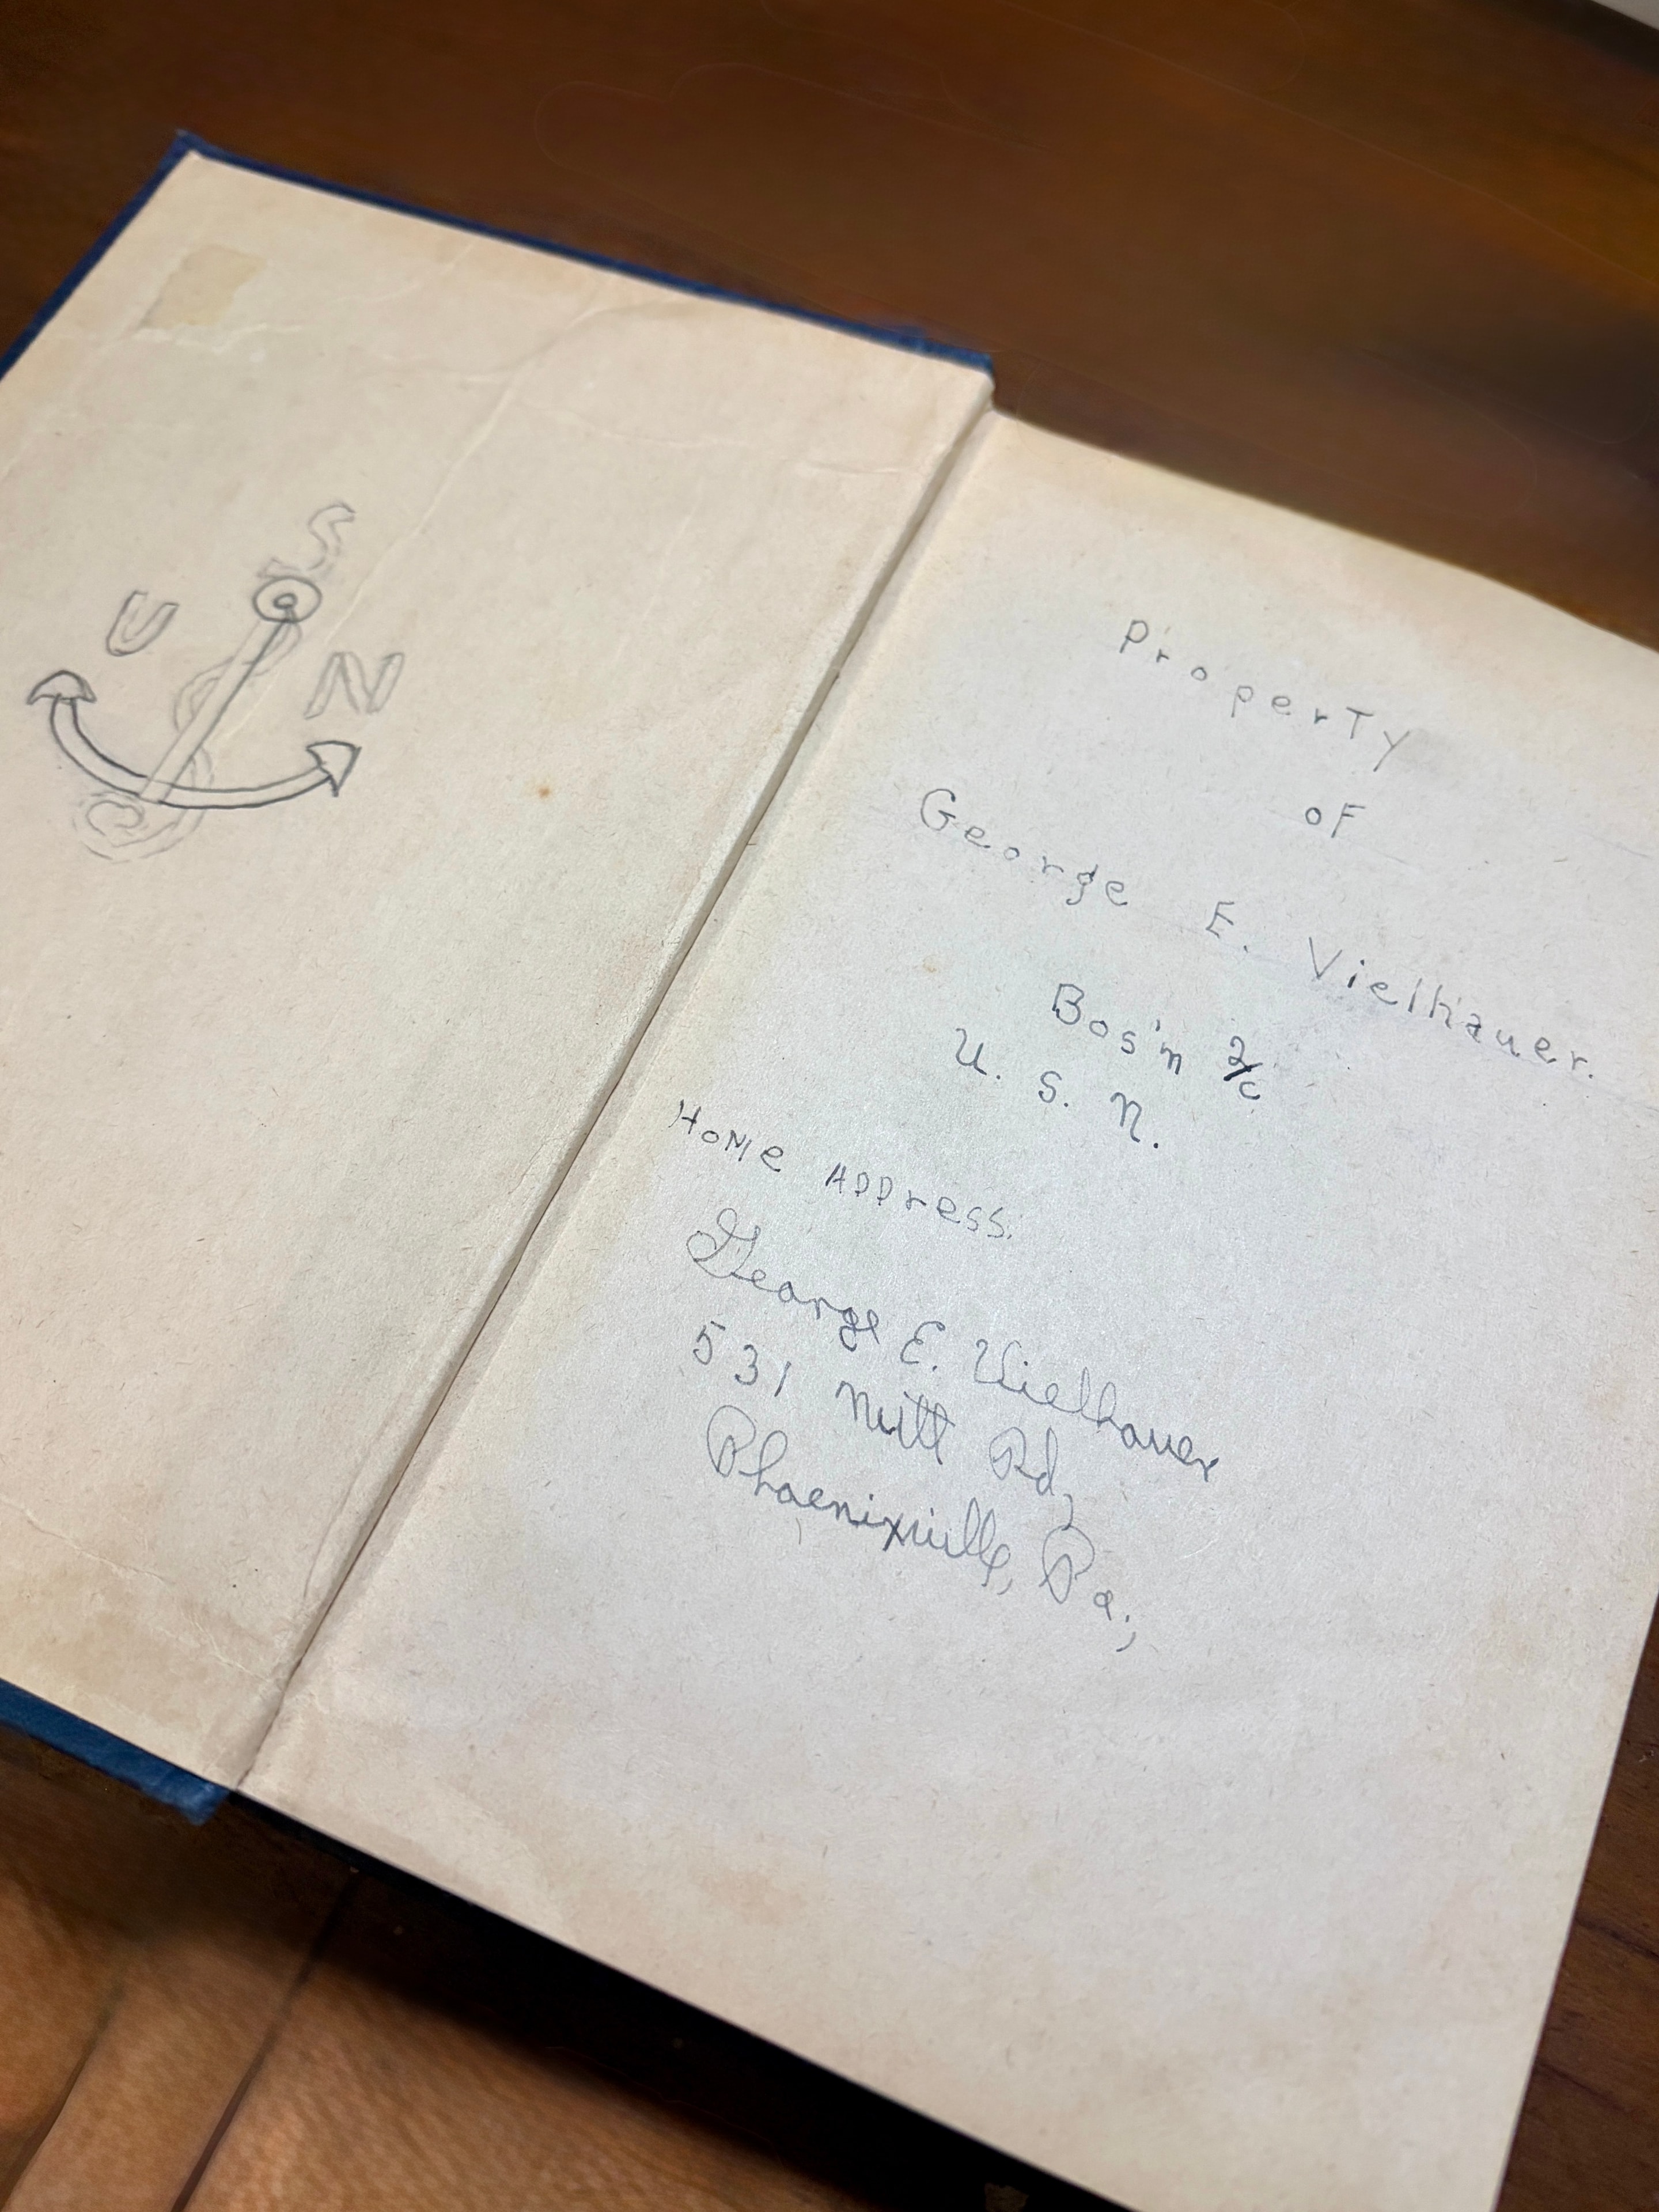 U S N
Property
oF
George E. Vielhauer.
Bos'n 2/c
U. S. N.
Home Address.
George E. Vielhauer
531 Nutt Rd,
Phoenixville, Pa.,